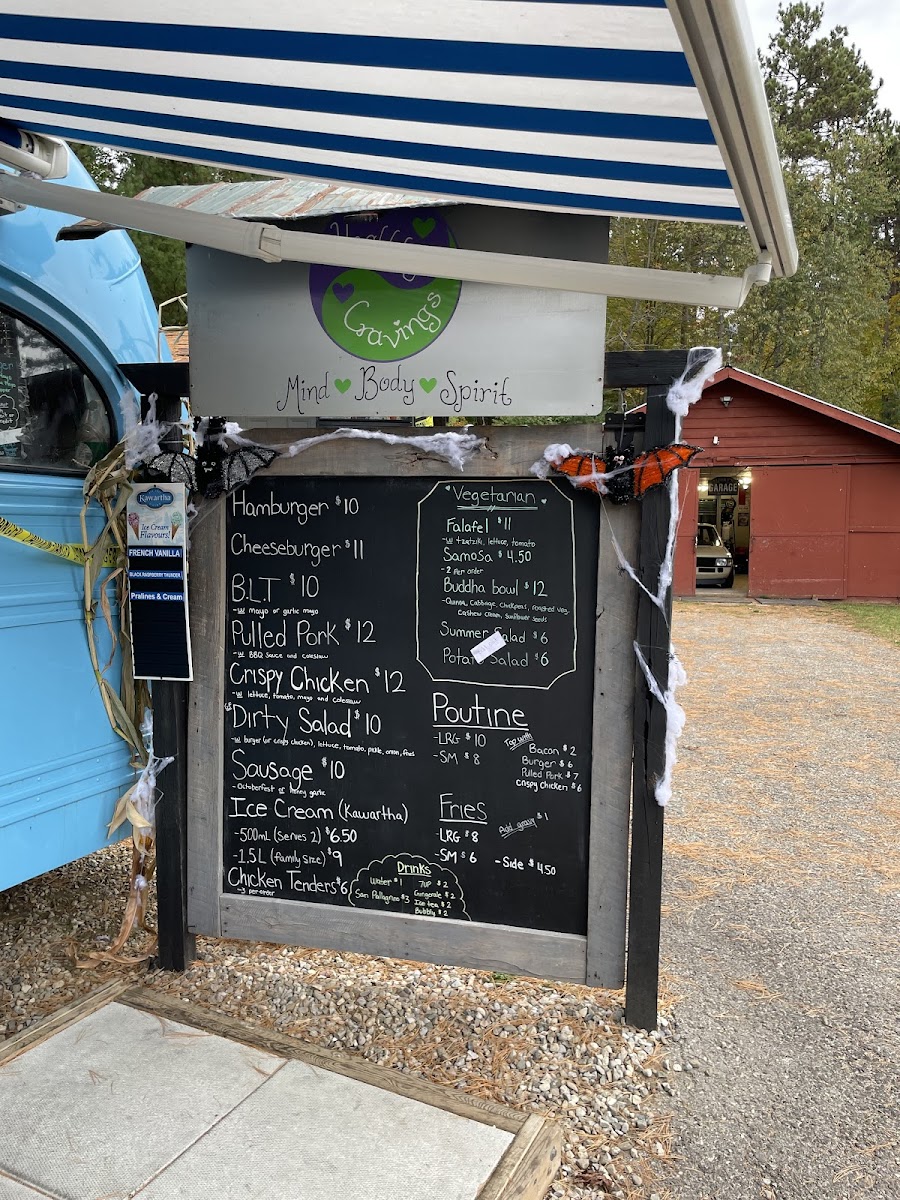 Cravings
Mind Body Spirit
Kawartha
Ice Cream
Flavours!
FRENCH VANILLA
BLACK RASPBERRY THUNDER
Pralines & Cream
GARAGE
Hamburger $10
Cheeseburger $11
B.L.T $10
-w mayo or garlic mayo
Pulled Pork $12
-w BBQ sauce and coleslaw
Crispy Chicken $12
-w lettuce, tomato, mayo and coleslaw
Dirty Salad $10
-w burger (or crispy chicken), lettuce, tomato, pickle, onion, fries
Sausage $10
-Octoberfest or honey garlic
Ice Cream (Kawartha)
-500mL (serves 2) $6.50
-1.5L (family size) $9
Chicken Tenders $6
-3 per order
Vegetarian
Falafel $11
-w tzatziki, lettuce, tomato
Samosa $4.50
-2 per order
Buddha bowl $12
-Quinoa, cabbage, chickpeas, roasted veg,
cashew cream, sunflower seeds
Summer Salad $6
Potato Salad $6
Poutine
-LRG $10
-SM $8
Top with
Bacon $2
Burger $6
Pulled Pork $7
Crispy chicken $6
Fries
-LRG $8
-SM $6
Add gravy $1
-Side $4.50
Drinks
Water $1
San Pellegrino $3
7UP $2
Gingerale $2
Ice tea $2
Bubbly $2